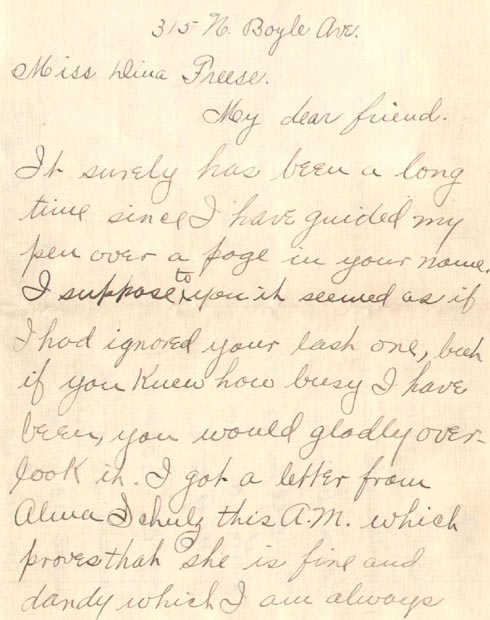 315 N. Boyle Ave.
Miss Dina Freese.
My dear friend.
It surely has been a long
time since I have guided my
pen over a page in your name.
I suppose to you it seemed as if
I had ignored your last one, but
if you knew how busy I have
been, you would gladly over-
look it. I got a letter from
Alma Schulz this A.M. which
proves that she is fine and
dandy which I am always